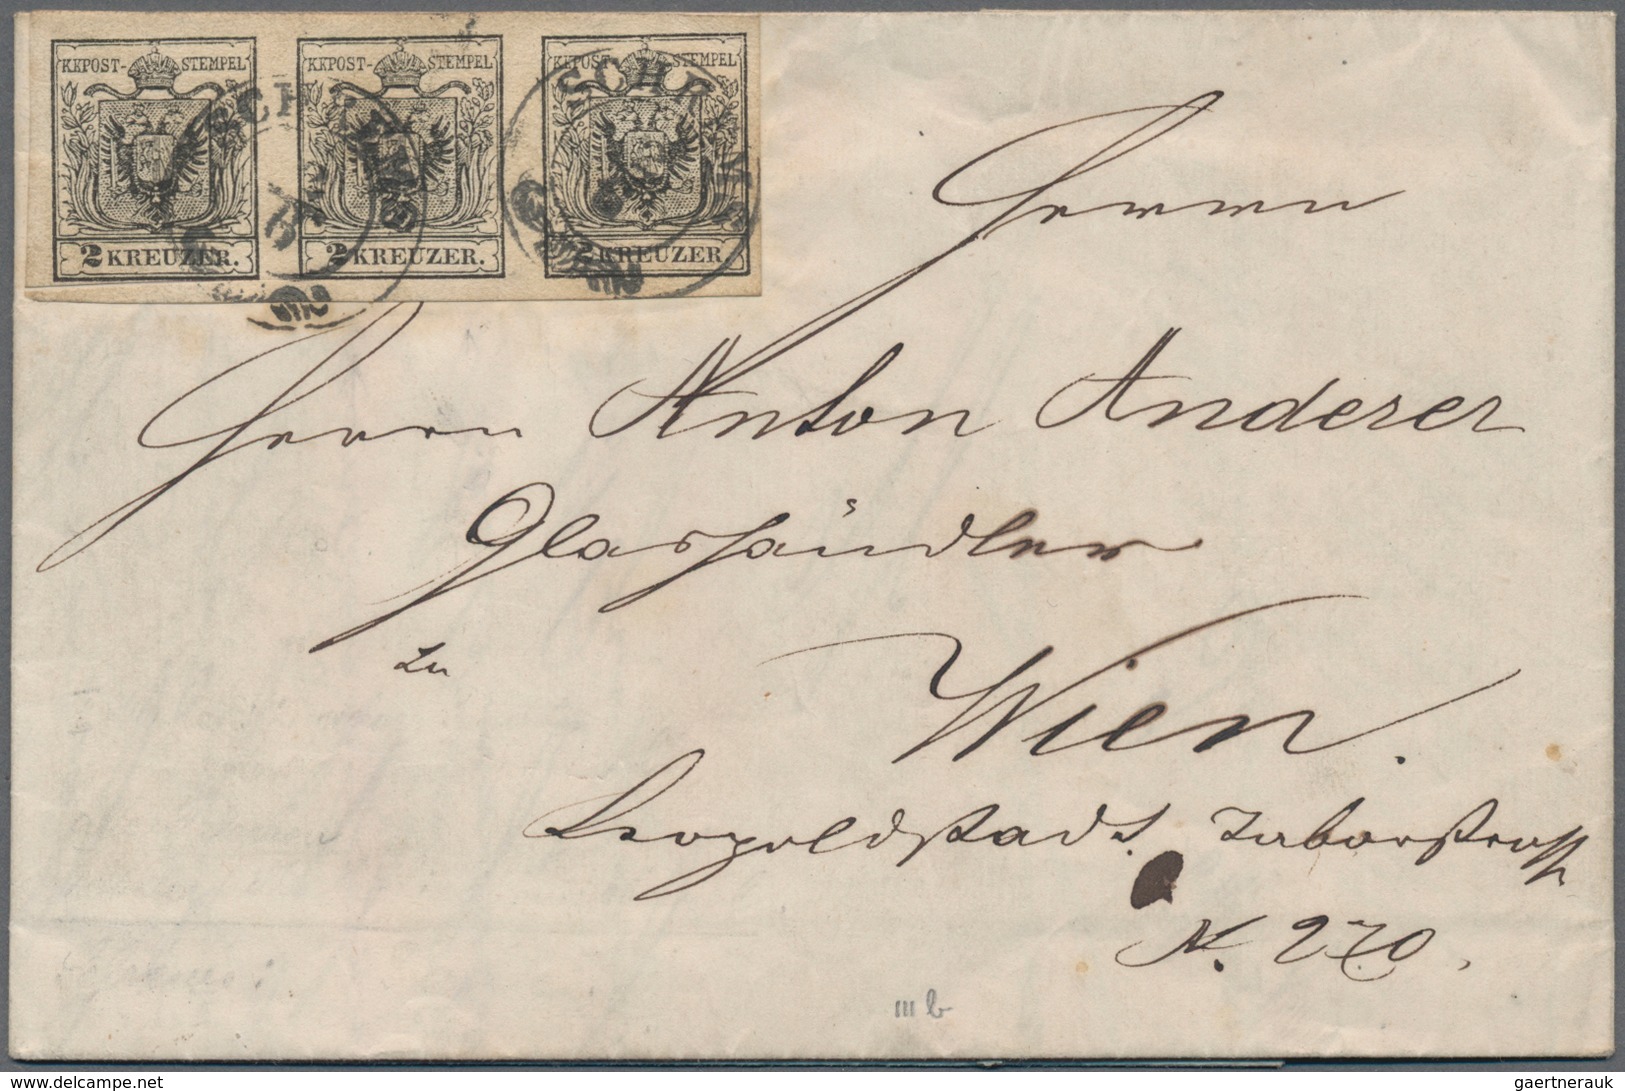 KKPOST-STEMPEL KKPOST-STEMPEL KKPOST-STEMPEL
2 KREUZER. 2 KREUZER. 2 KREUZER.
Herrn
Herrn Anton Anderer
Glashändler
zu
Wien.
Leopoldstadt Taborstrasse
N. 270.
III b
www.delcampe.net
gaertnerauk